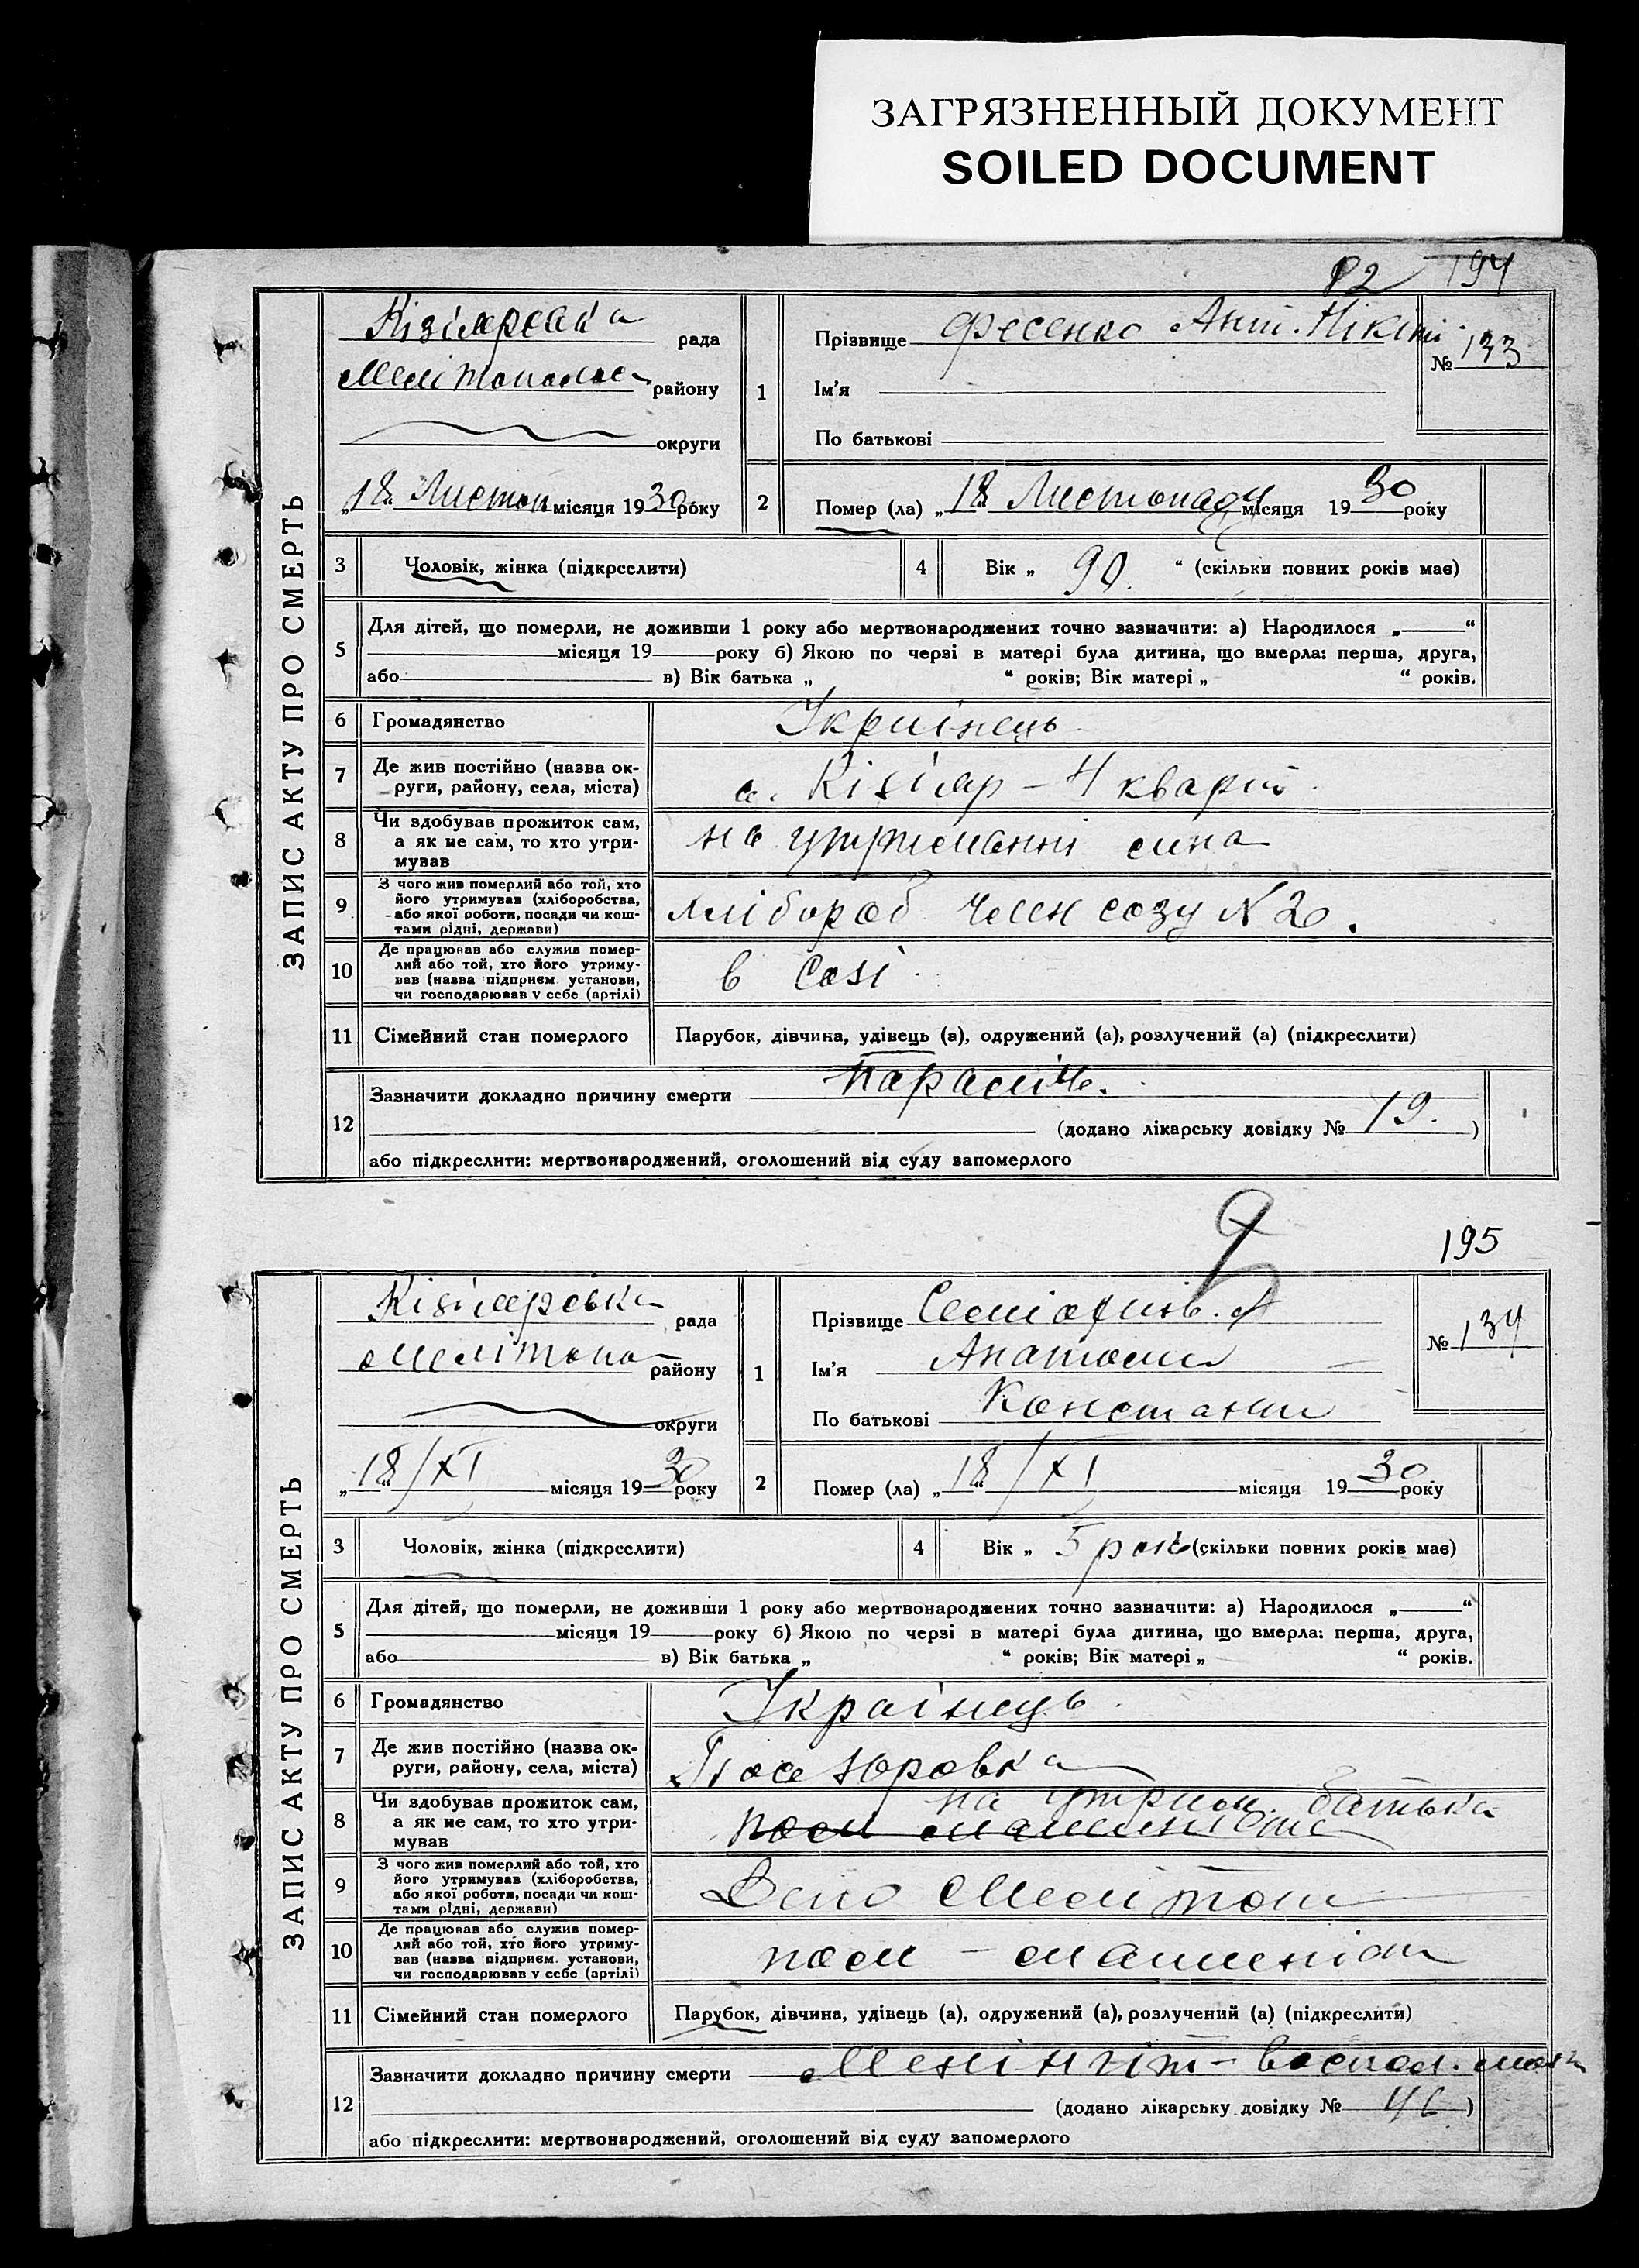 ЗАГРЯЗНЕННЫЙ ДОКУМЕНТ
SOILED DOCUMENT
194
ЗАПИС АКТУ ПРО СМЕРТЬ
Кізіярська рада
району
округи
„18“ Листоп місяця 1930 року
1 Прізвище Фесенко Ант. Нікіт
№ 133
Ім'я
По батькові
2 Помер (ла) „18“ Листопаду місяця 1930 року
3 Чоловік, жінка (підкреслити)
4 Вік „ 90. “ (скільки повних років має)
5 Для дітей, що померли, не доживши 1 року або мертвонароджених точно зазначити: а) Народилося „ “
місяця 19 року б) Якою по черзі в матері була дитина, що вмерла: перша, друга,
або в) Вік батька „ “ років; Вік матері „ “ років.
6 Громадянство Українець
7 Де жив постійно (назва ок-
руги, району, села, міста) с. Кізіяр - 4 кварт.
8 Чи здобував прожиток сам,
а як не сам, то хто утри-
мував на утриманні сина
9 З чого жив померлий або той, хто
його утримував (хліборобства,
або якої роботи, посади чи кош-
тами рідні, держави) хлібороб член созу N 20.
10 Де працював або служив помер-
лий або той, хто його утриму-
вав (назва підприєм. установи,
чи господарював у себе (артілі) в Созі
11 Сімейний стан померлого Парубок, дівчина, удівець (а), одружений (а), розлучений (а) (підкреслити)
12 Зазначити докладно причину смерти параліч.
(додано лікарську довідку № 19. )
або підкреслити: мертвонароджений, оголошений від суду запомерлого
195
ЗАПИС АКТУ ПРО СМЕРТЬ
Кізіярська рада
Мелітопо району
округи
„18“/XI місяця 1930 року
1 Прізвище
№ 134
Ім'я Анатолий
По батькові Константи
2 Помер (ла) „18“/XI місяця 1930 року
3 Чоловік, жінка (підкреслити)
4 Вік „ 5 рок (скільки повних років має)
5 Для дітей, що померли, не доживши 1 року або мертвонароджених точно зазначити: а) Народилося „ “
місяця 19 року б) Якою по черзі в матері була дитина, що вмерла: перша, друга,
або в) Вік батька „ “ років; Вік матері „ “ років.
6 Громадянство Українець
7 Де жив постійно (назва ок-
руги, району, села, міста) Юровка
8 Чи здобував прожиток сам,
а як не сам, то хто утри-
мував на утрим. батька
пом машиніст
9 З чого жив померлий або той, хто
його утримував (хліборобства,
або якої роботи, посади чи кош-
тами рідні, держави) Депо Мелітоп
10 Де працював або служив помер-
лий або той, хто його утриму-
вав (назва підприєм. установи,
чи господарював у себе (артілі) пом - машиніст
11 Сімейний стан померлого Парубок, дівчина, удівець (а), одружений (а), розлучений (а) (підкреслити)
12 Зазначити докладно причину смерти Менінгіт - воспал. мозг
(додано лікарську довідку № 46 )
або підкреслити: мертвонароджений, оголошений від суду запомерлого